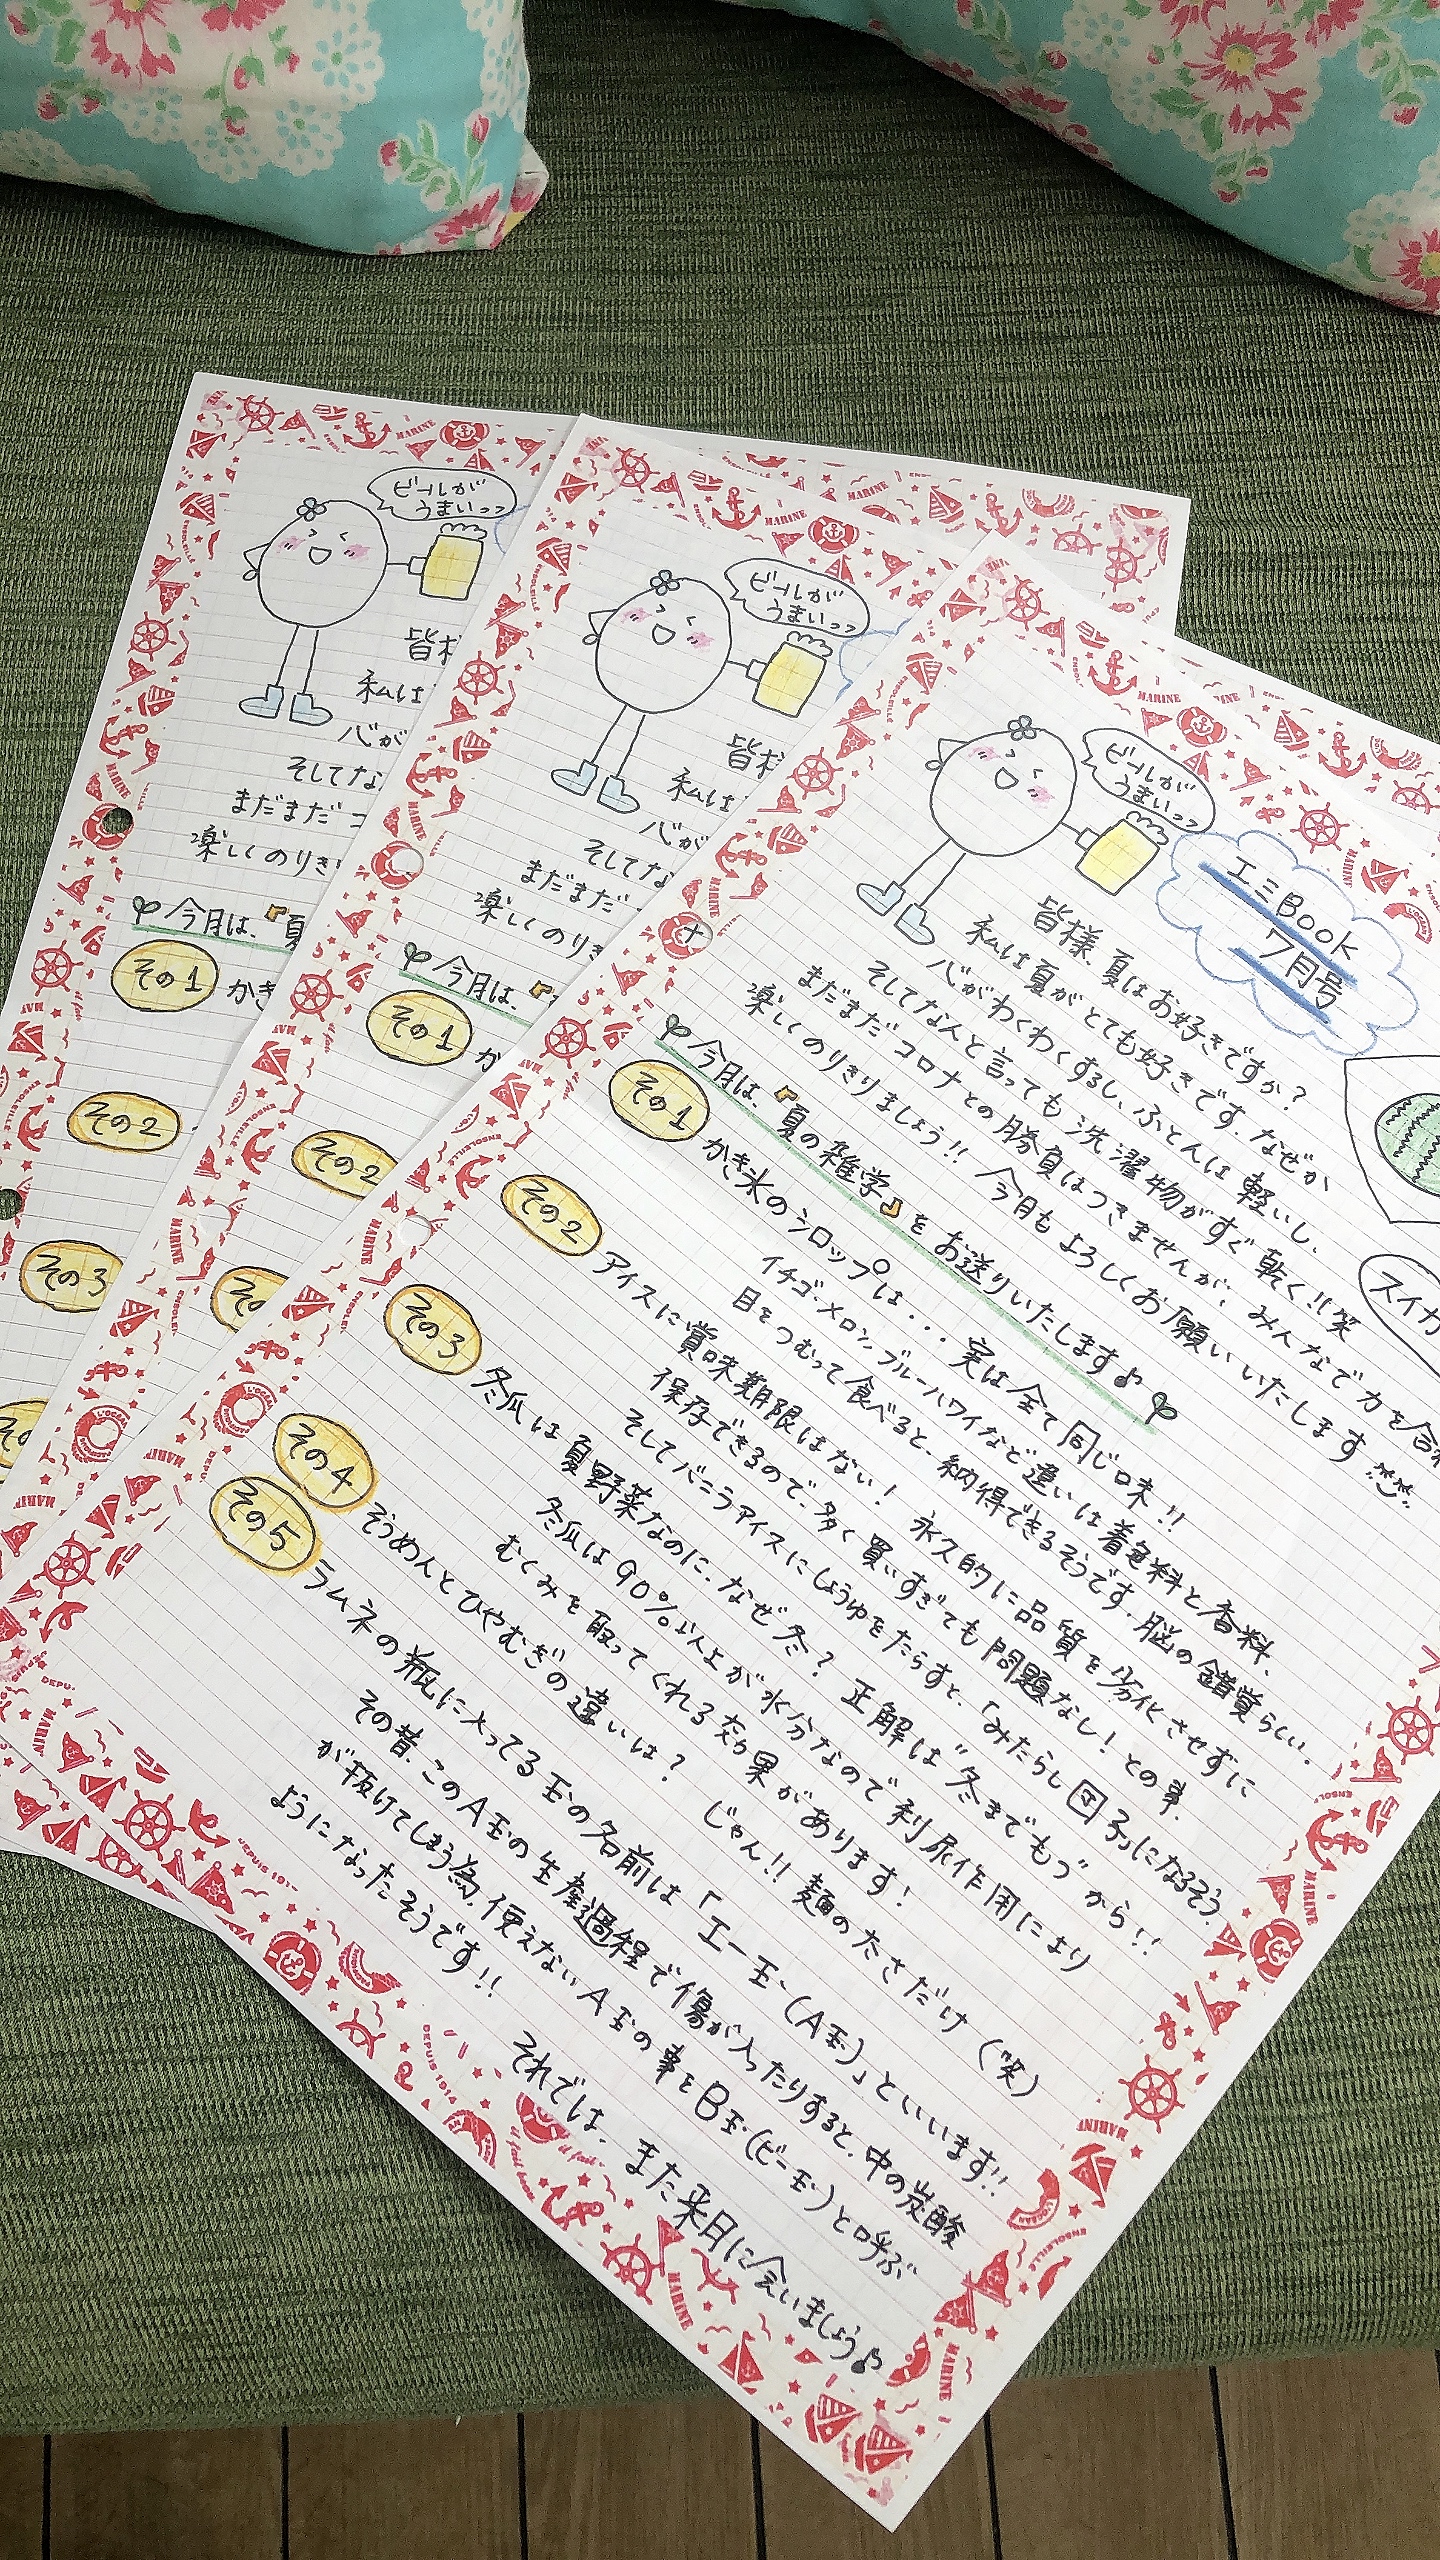 ビールが
うまいっっ
エミBook
7月号
皆様、夏はお好きですか？
私は夏がとても好きです。なぜか
心がわくわくするし、ふとんは軽いし、
そしてなんと言っても洗濯物がすぐ乾く!!笑
まだまだコロナとの勝負はつきませんが、みんなで力を合わ
楽しくのりきりましょう!! 今月もよろしくお願いいたします
スイカ
今月は、『夏の雑学』をお送りいたします♪
その1 かき氷のシロップは・・・実は全て同じ味!!
イチゴ・メロン・ブルーハワイなど違いは着色料と香料、
目をつむって食べると、納得できるそうです。脳の錯覚らしい。
その2 アイスに賞味期限はない！ 永久的に品質を劣化させずに
保存できるので、多く買いすぎても問題なし！との事。
そしてバニラアイスにしょうゆをたらすと、「みたらし団子」になるそう。
その3 冬瓜は夏野菜なのに、なぜ冬？ 正解は"冬までもつ"から!!
冬瓜は90%以上が水分なので利尿作用により
むくみを取ってくれる効果があります！
その4 そうめんとひやむぎの違いは？ じゃん!! 麺の太さだけ（笑）
その5 ラムネの瓶に入ってる玉の名前は「エー玉（A玉）」といいます!!
その昔、このA玉の生産過程で傷が入ったりすると、中の炭酸
が抜けてしまう為、使えないA玉の事をB玉（ビー玉）と呼ぶ
ようになったそうです!!
それでは、また来月に会いましょう♪
ビールが
うまいっっ
皆様
私は
心が
そしてな
まだまだ
楽しくのりき
今月は、『
その1 か
その2
ビールが
うまいっっ
皆様
私は
心が
そしてな
まだまだコ
楽しくのりき
今月は、『夏
その1 かき
その2
その3